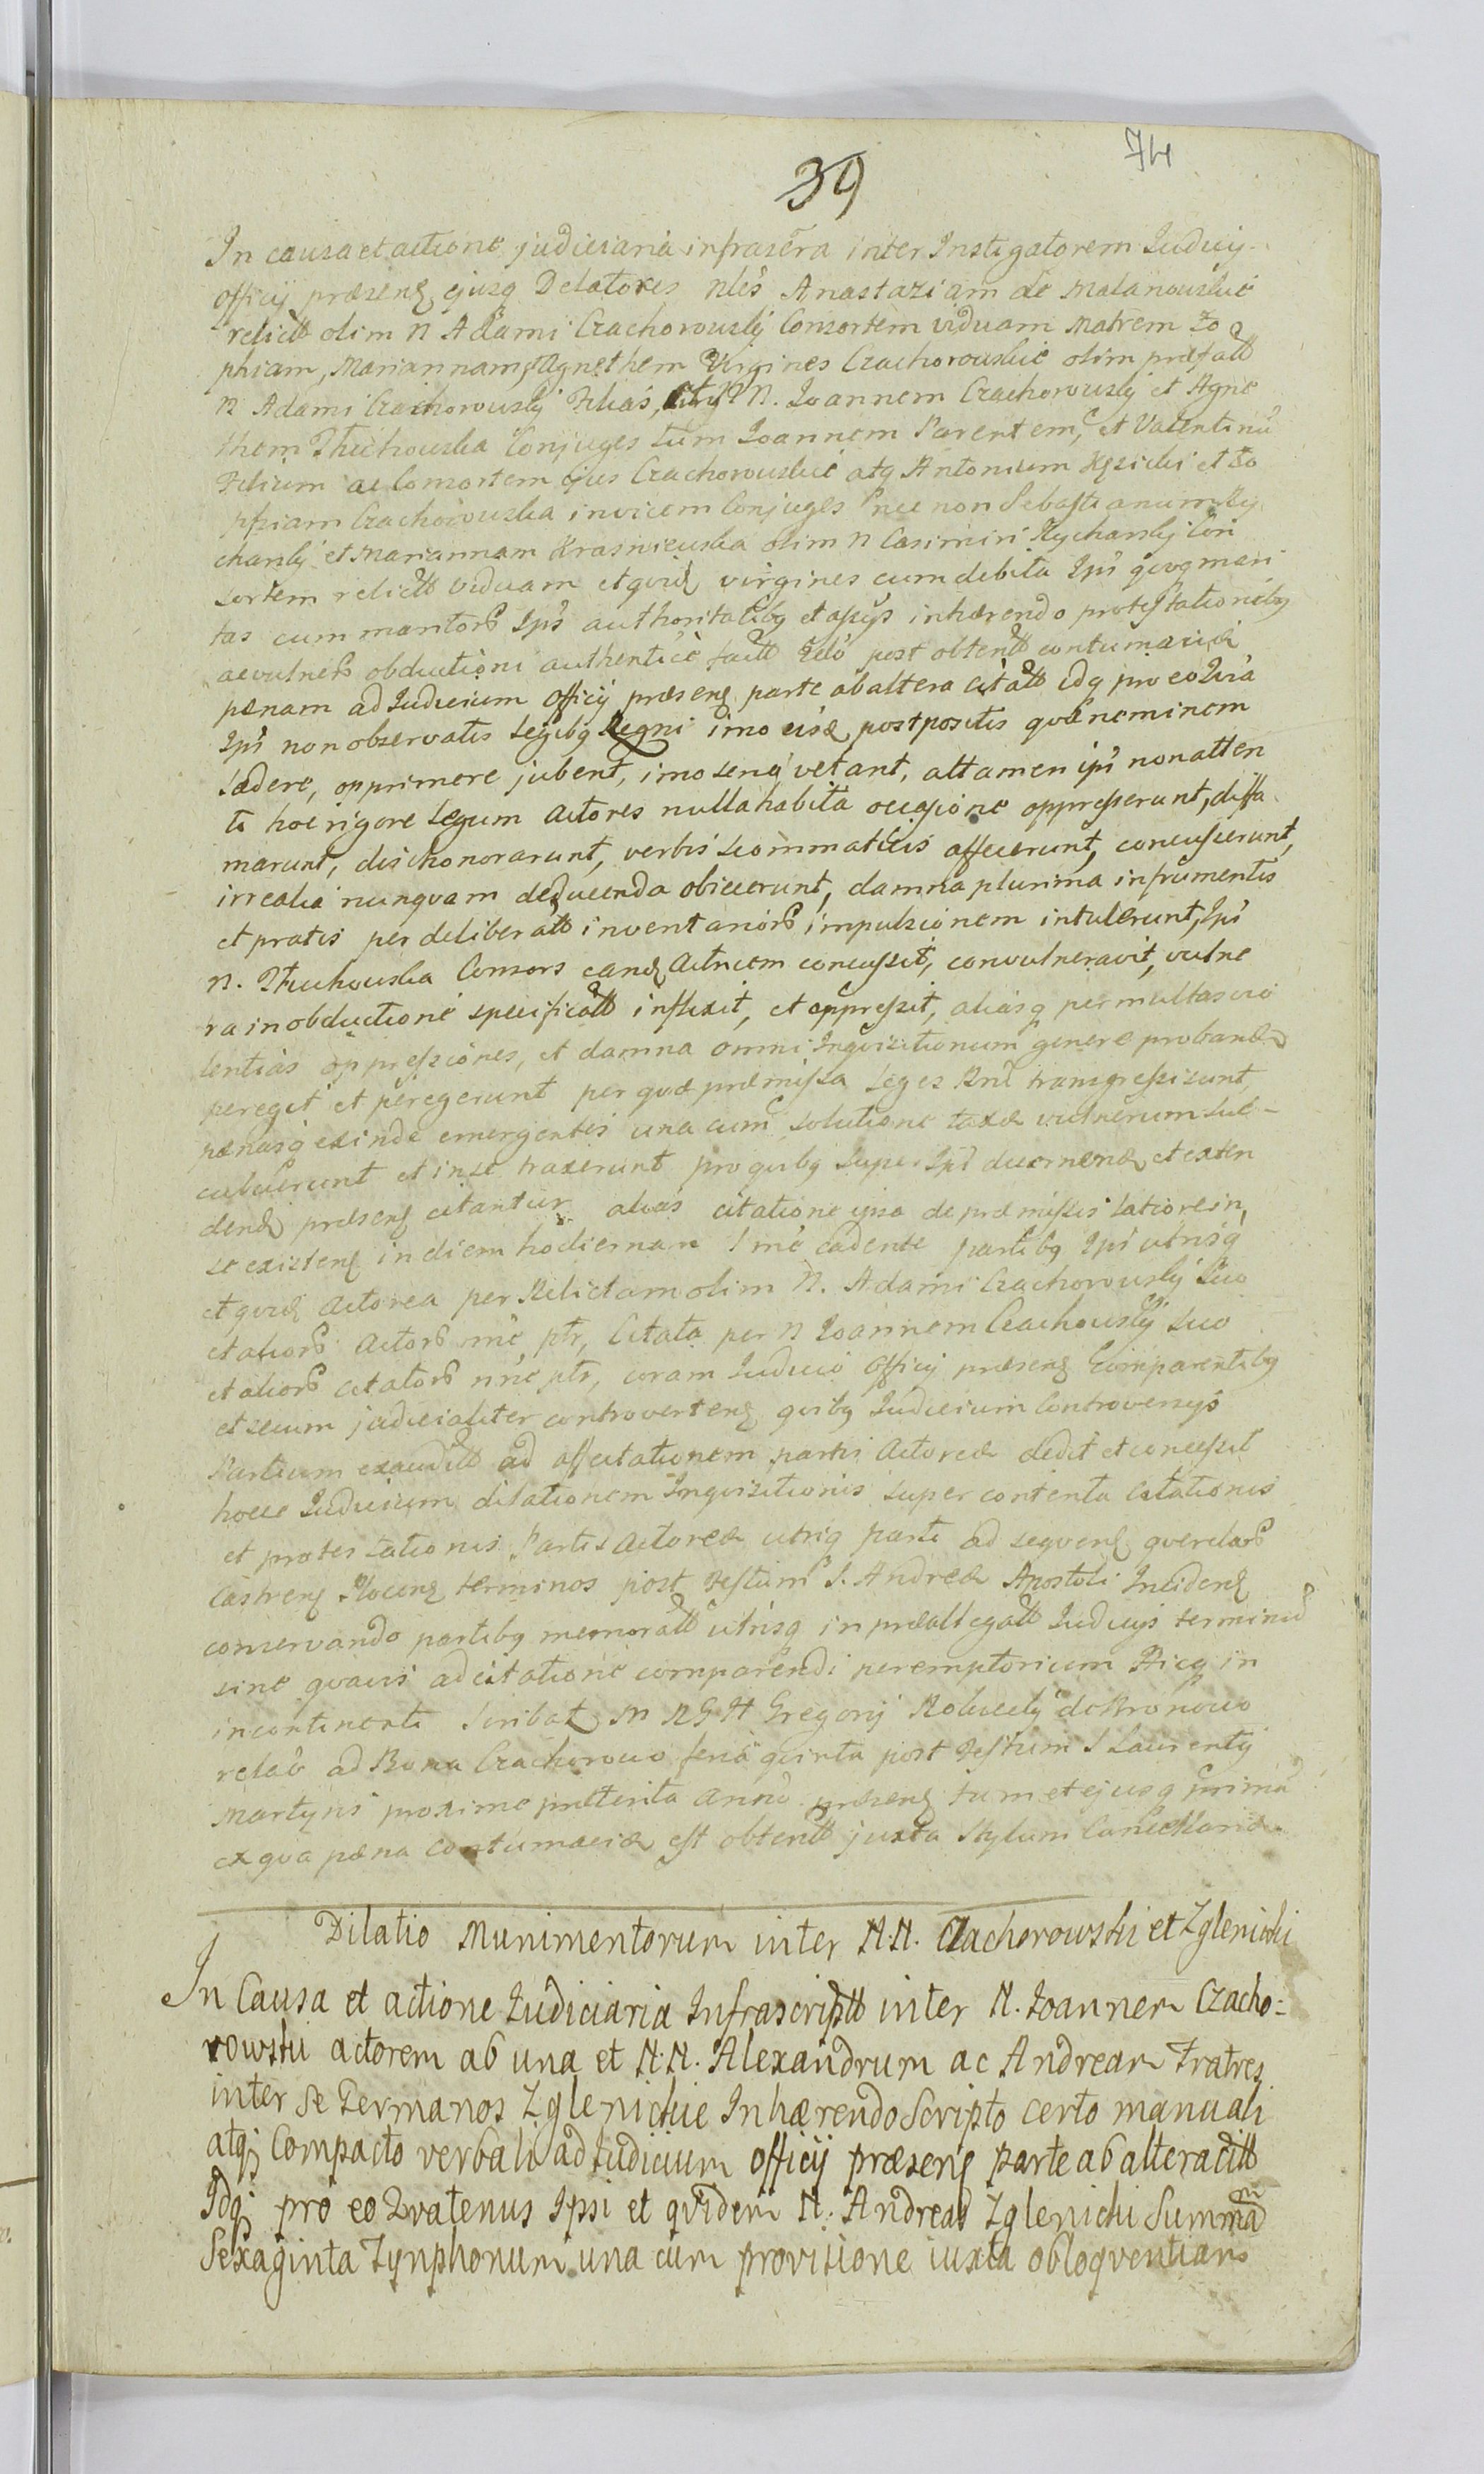 39
74
In causa et actione judiciaria infrascra inter Instigatorem Judicij
Officij præsenɮ ejusq Delatores nles Anastaziam de Malanowskie
relictt olim N Adami Czachorowskij Consortem viduam Matrem Zo
phiam, Mariannam, Agnethem Virgines Czachorowskie olim præfatt
N Adami Czachorowskij Filias, N. Joannem Czachorowskij et Agne
them Conjuges tum Joannem Parentem, et Valentinū
Filium ac Consortem ejus Czachorowskie atq Antonium et Zo
phiam Czachorowska invicem Conjuges nec non Sebastianum Ry
charskij et Mariannam Krasniewska olim N Casimiri Rycharskij Con
sortem relictt viduam et qvidɮ virgines cum debita Ipś qvoq mari
tas cum maritorꝫ Ipś authoritatibq et assijs inhærendo protestationibq
ac vulnerꝫ obductioni authentice factt Zelo post obtentt contumaciæ
pænam ad Judicium Officij præsenɮ parte ab altera citatt idq pro eo Qvia
Ipś non observatis Legibq Regni imo eisdē postpositis qvæ neminem
lædere, opprimere jubent, imo serio vetant, attamen ipś non atten
to hoc rigore Legum Actores nulla habita occasione oppresserunt, diffa
marunt, dishonorarunt, verbis scommaticis affecerunt, concusserunt,
irrealia nunqvam deducenda obiecerunt, damna plurima in frumentis
et pratis per deliberatt inventariorꝫ impulsionem intulerunt, Ipś
N. Consors eandɮ Actricem concussit, convulneravit, vulne
ra in obductione specificatt inflixit, et oppressit, aliasq permultas vio
lentias oppressiones, et damna omni Inqvisitionum genere probandæ
peregit et peregerunt per qvæ præmissa Leges Rni transgressi sunt,
pænasq exinde emergentes una cum solutione taxæ vulnerum suc-
cubuerunt et in se traxerunt pro qvibq super Ipś decernendɮ et exten
dendɮ præsenɮ citantur alias citatione ipsa de præmissis latiore in
se existenɮ in diem hodiernam cadente partibq Ipś utrisq
et qvidɮ Actorea per Relictam olim N. Adami Czachorowskij Suo
et aliorꝫ Actorꝫ nne ptr, Citata per N Joannem Czachowskij Suo
et aliorꝫ citatorꝫ nne ptr, coram Judicio Officij præsenɮ Comparentibq
et secum judicialiter controvertenɮ qvibq Judicium Controversijs
Partium exauditt ad affectationem partis Actoreæ dedit et concessit
hocce Judicium dilationem Inqvisitionis super contenta Citationis
et protestationis Partis Actoreæ utriq parti ad seqvenɮ qverelarꝫ
Castrenɮ Plocenɮ terminos post Festum S. Andreæ Apostoli Incidenɮ
conservando partibq memoratt utrisq in præallegatt Judicijs terminū
sine qvavis adcitatione comparendi peremptorium in
incontinenti Scribat M RGH Gregorij de Bronowo
relav ad Bona Czachorowo feria qvinta post Festum S Laurentij
Martyris proxime præterita Anno præsenɮ tum et ejusq prima
ex qva pæna Contumaciæ est obtentt juxta Stylum Cancellariæ
Dilatio Munimentorum inter N.N. Czachorowski et Zglenicki
In Causa et actione Judiciaria Infrascriptt inter N. Joannem Czacho=
rowski actorem ab una et N.N. Alexandrum ac Andream Fratres
inter se Germanos Zglenickie Inhærendo Scripto certo manuali
atqj Compacto verbali ad Judicium officij præsenɮ parte ab altera citt
Idqj pro eo Qvatenus Ipsi et qvidem N. Andreas Zglenicki Summam
Sexaginta Tynphonum una cum provisione iuxta obloqventiam